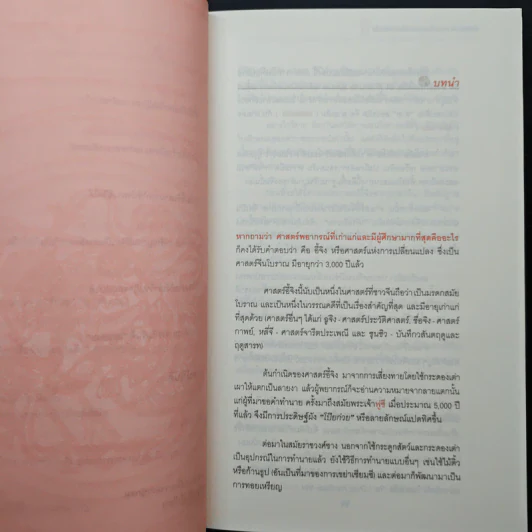 บทนำ
หากถามว่า ศาสตร์พยากรณ์ที่เก่าแก่และมีผู้ศึกษามากที่สุดคืออะไร
ก็คงได้รับคำตอบว่า คือ อี้จิง หรือศาสตร์แห่งการเปลี่ยนแปลง ซึ่งเป็น
ศาสตร์จีนโบราณ มีอายุกว่า 3,000 ปีแล้ว
ศาสตร์อี้จิงนี้นับเป็นหนึ่งในศาสตร์ที่ชาวจีนถือว่า เป็นมรดกสมัย
โบราณ และเป็นหนึ่งในวรรณคดีที่เป็นเรื่องสำคัญที่สุด และมีอายุเก่าแก่
ที่สุดด้วย (ศาสตร์อื่นๆ ได้แก่ ชูจิง - ศาสตร์ประวัติศาสตร์, ซือจิง - ศาสตร์
กาพย์, หลี่จี้ - ศาสตร์จารีตประเพณี และ ชุนชิว - บันทึกวสันตฤดูและ
ฤดูสารท)
ต้นกำเนิดของศาสตร์อี้จิง มาจากการเสี่ยงทายโดยใช้กระดองเต่า
เผาให้แตกเป็นลายงา แล้วผู้พยากรณ์ก็จะอ่านความหมายจากลายแตกนั้น
แก่ผู้ที่มาขอคำทำนาย ครั้งมาถึงสมัยพระเจ้าฟูซี เมื่อประมาณ 5,000 ปี
ที่แล้ว จึงมีการประดิษฐ์ผัง "โป๊ยก่วย" หรือลายลักษณ์แปดทิศขึ้น
ต่อมาในสมัยราชวงศ์ชาง นอกจากใช้กระดูกสัตว์และกระดองเต่า
เป็นอุปกรณ์ในการทำนายแล้ว ยังใช้วิธีการทำนายแบบอื่นๆ เช่นใช้ไม้ติ้ว
หรือก้านธูป (อันเป็นที่มาของการเขย่าเซียมซี) และต่อมาก็พัฒนามาเป็น
การทอยเหรียญ